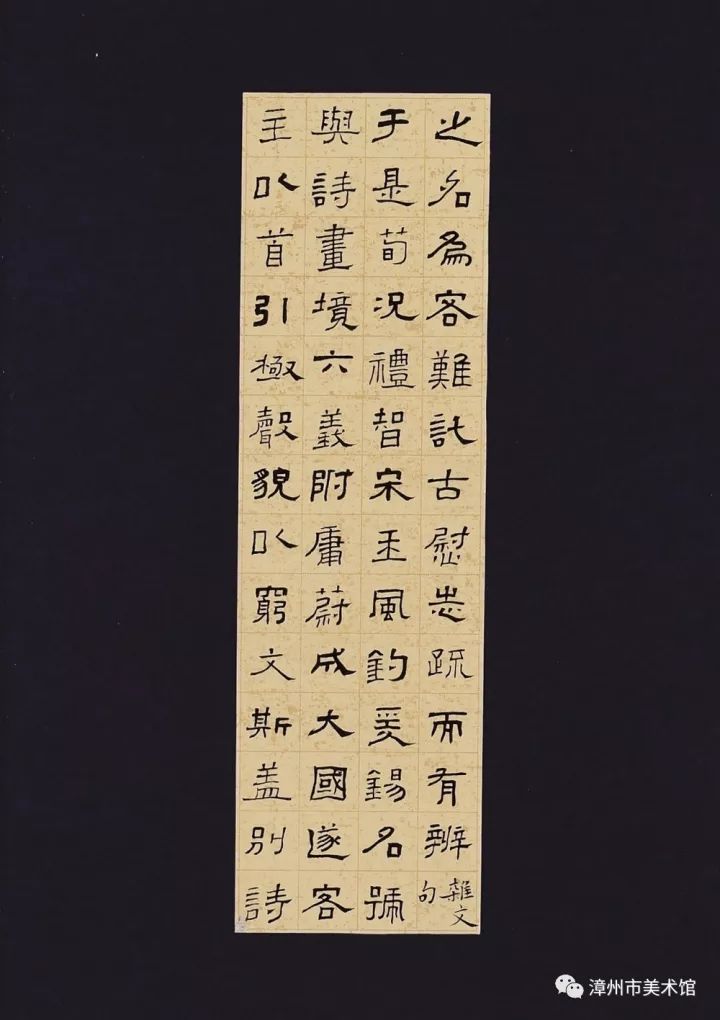 之名為客難託古慰志疏而有辨
雜文句
于是荀况禮智宋玉風釣爰錫名號
與詩畫境六義附庸蔚成大國遂客
主以首引極聲貌以窮文斯盖別詩
漳州市美术馆